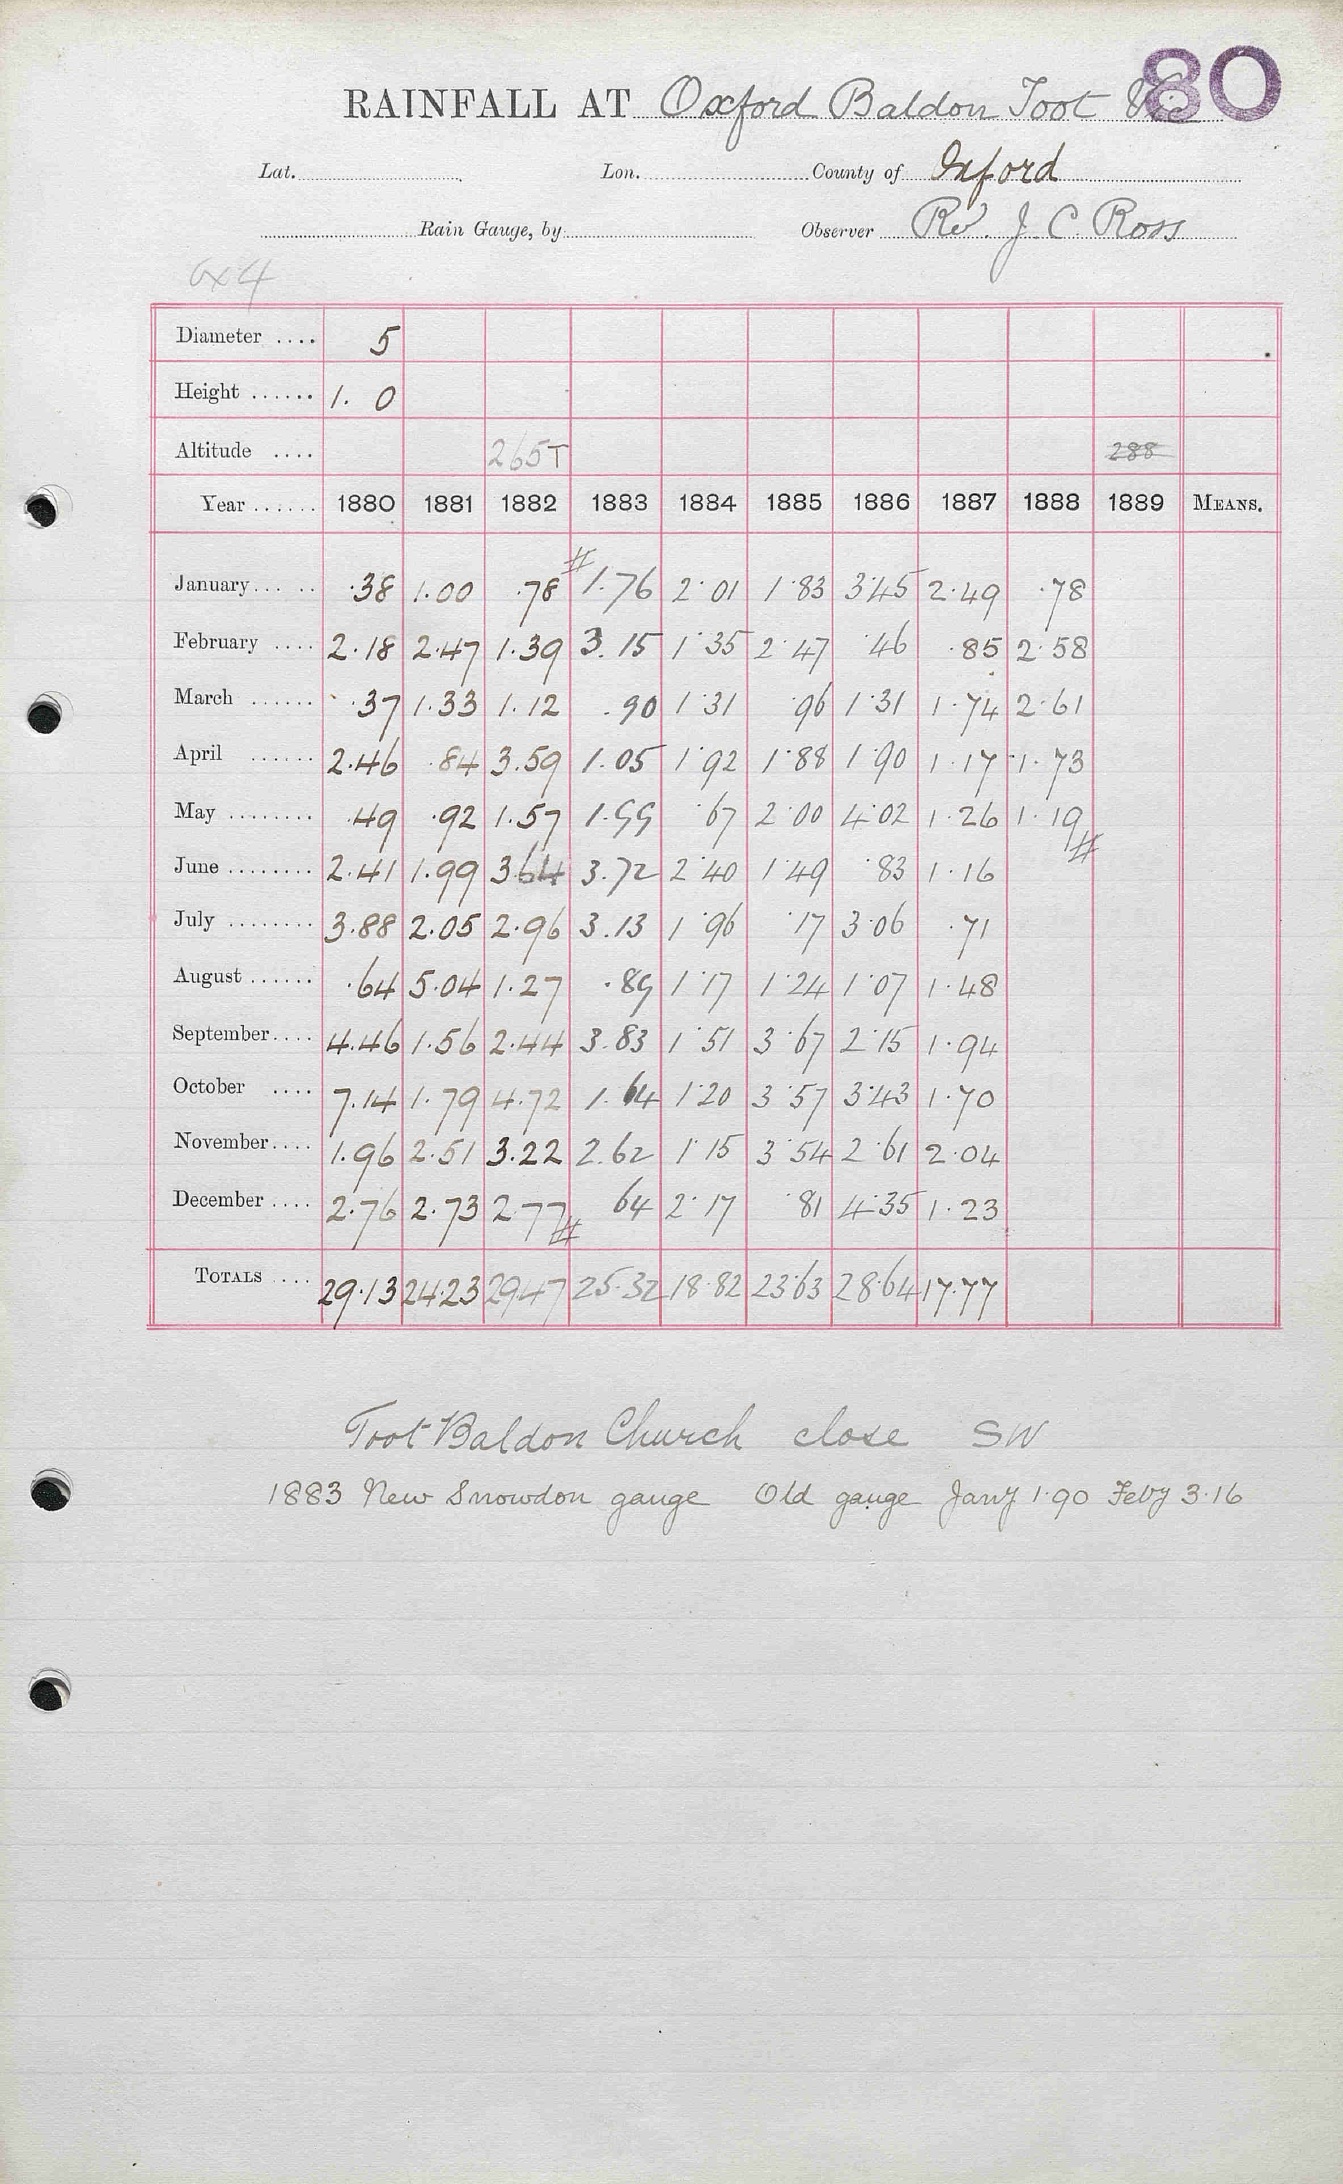 80
RAINFALL AT Oxford Baldon Toot Vic
Lat. Lon. County of Oxford
Rain Gauge, by Observer Rev. J. C. Ross
6x4
Diameter .... 5
Height ...... 1. 0
Altitude .... 265T 288
Year ...... 1880 1881 1882 1883 1884 1885 1886 1887 1888 1889 MEANS.
January... .. ·38 1.00 ·78 # 1.76 2·01 1·83 3·45 2·49 ·78
February .... 2·18 2·47 1·39 3.15 1·35 2·47 ·46 ·85 2·58
March ...... ·37 1·33 1·12 .90 1·31 ·96 1·31 1·74 2·61
April ...... 2·46 ·84 3.59 1.05 1·92 1·88 1·90 1·17 1·73
May ........ ·49 ·92 1·57 1.99 ·67 2·00 4·02 1·26 1·19 #
June ........ 2·41 1.99 3.64 3.72 2·40 1·49 ·83 1·16
July ........ 3·88 2.05 2·96 3.13 1·96 ·17 3·06 ·71
August ...... ·64 5·04 1·27 .89 1·17 1·24 1·07 1·48
September.... 4.46 1·56 2·44 3.83 1·51 3·67 2·15 1·94
October .... 7.14 1·79 4·72 1.64 1·20 3·57 3·43 1·70
November.... 1.96 2·51 3.22 2.62 1·15 3·54 2·61 2·04
December .... 2·76 2.73 2·77 # 64 2·17 ·81 4·35 1·23
TOTALS .... 29·13 24·23 29·47 25·32 18·82 23·63 28·64 17·77
Toot Baldon Church close SW
1883 New Snowdon gauge Old gauge Jany 1·90 Feby 3·16